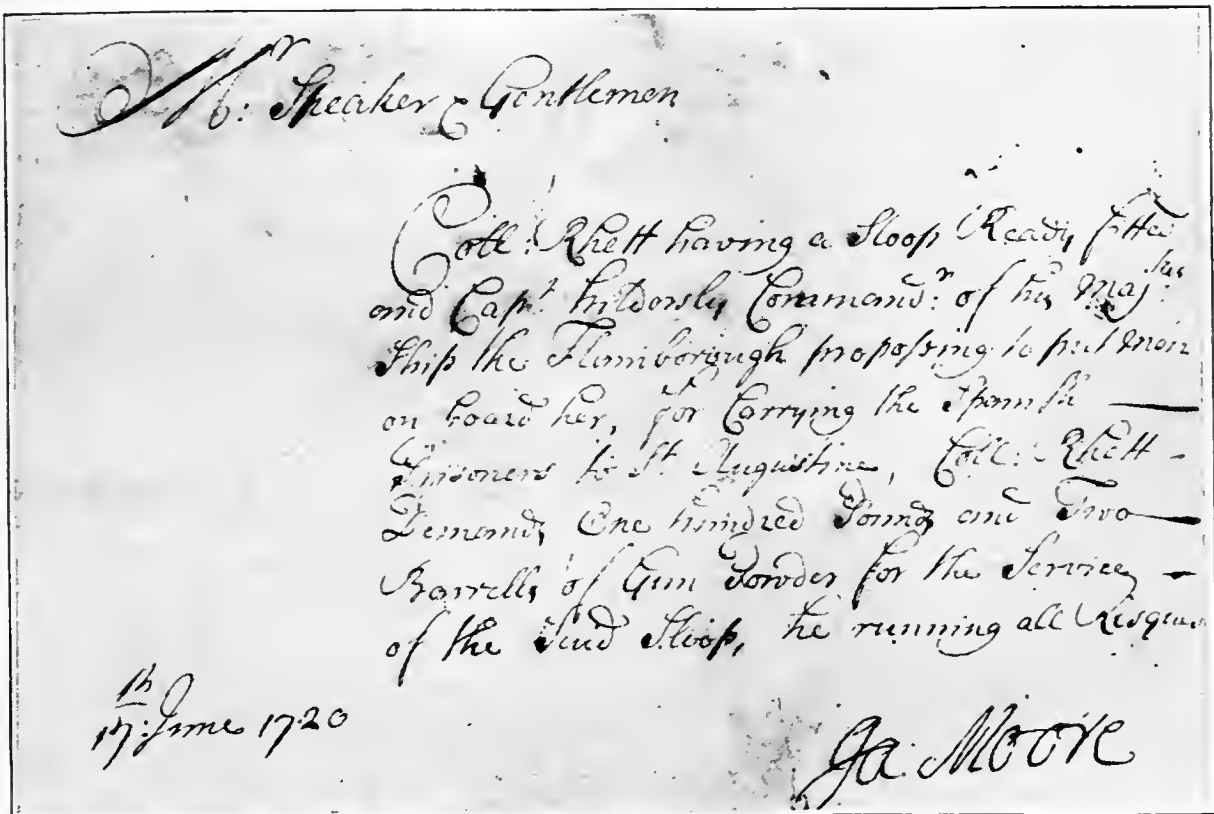 Mr: Speaker & Gentlemen
Coll: Rhett having a Sloop Ready fitted
and Capt. hildersly Commandr: of his Majties
Ship the Flamborough proposing to put men
on board her, for Carrying the Spanish —
Prisoners to St. Augustine, Coll: Rhett -
Demands One hundred Pounds and Two —
Barrells of Gun Powder for the Service, -
of the Said Sloop, he running all Risques
17th: June 1720
Ja: Moore